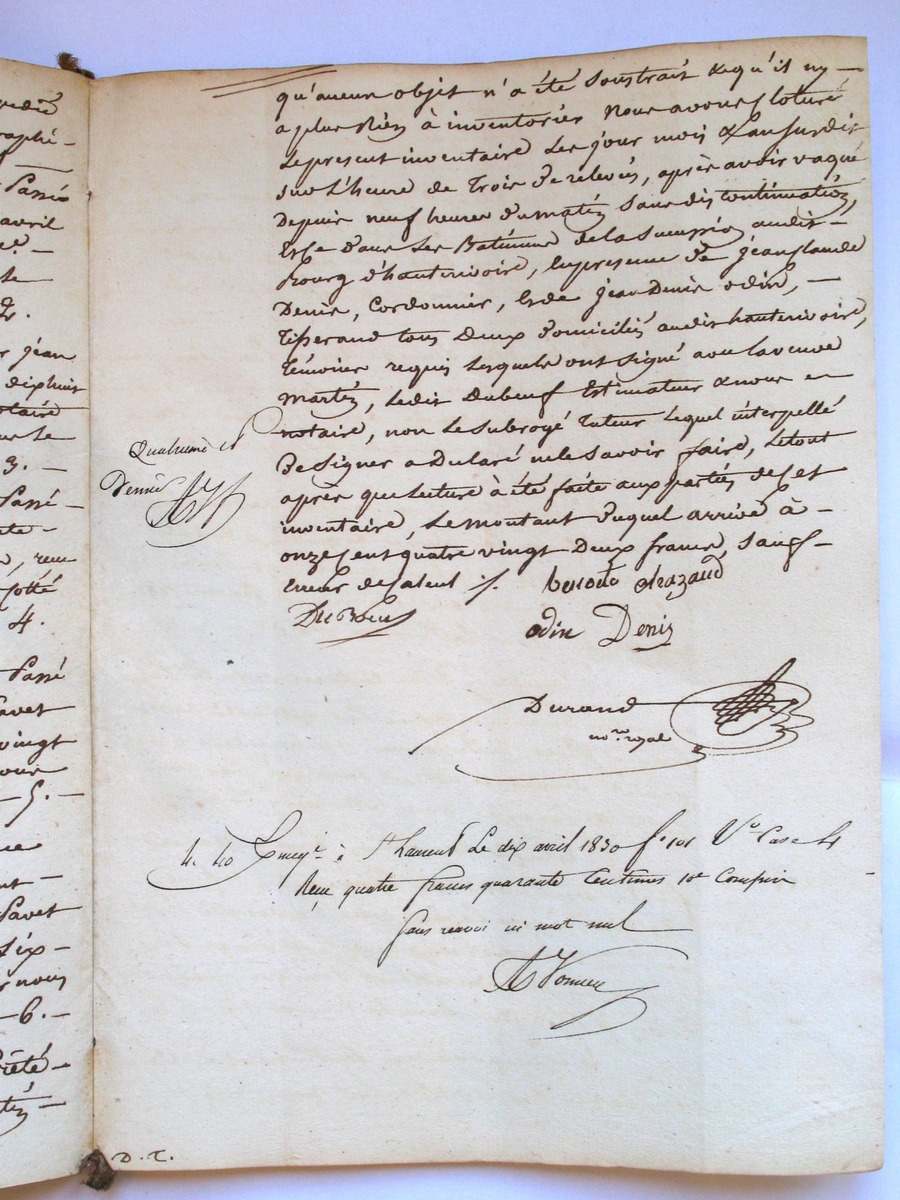 qu'aucun objet n'a été soustrait & qu'il ny —
a plus Rien à inventorier Nous avons Cloturé
Le present inventaire Les jour mois & an susdit
sur L'heure de Trois De relevée, après avoir vaqué
Depuis neuf heures Du matin Sans discontinuation,
Et Ce dans Les Batiments de la succession audit —
Bourg d'hauterivoire, En presence de jean Claude
Denis, Cordonnier, Et de jean Denis odin, —
Tisserand tous Deux Domiciliés audit hauterivoire,
Témoins requis Lesquels ont signé avec La veuve
Martin, Ledit Dubeuf Estimateur & nous —
notaire, non Le subrogé Tuteur Lequel interpellé
De signer a Declaré ne le savoir faire, Le tout
après que Lecture à été faite aux parties de Cet
inventaire, Le montant Duquel arrive à —
onze Cent quatre vingt Deux francs, Sauf —
Erreur de Calcul ./.
Quatrieme et
Dernier
benoite chazaud
DuBoeuf
odin Denis
Durand
no.re royal
4. 40 Enreg.é à St Laurent Le dix avril 1830 f.o 101 V.o Case 4
Reçu quatre francs quarante Centimes 10e Compris
Sans renvoi ni mot nul
D. T.
redié
raphé —
Passé
avril
Le
2.
r jean
dixhuit
otaire
sur Le
3. —
Passé —
ete —
, reçu
Cotté
4.
Passé
Pavet
vingt
Pour
— 5. —
ue
nt —
Pavet
Six —
r nous
— 6. —
riété —
tin —